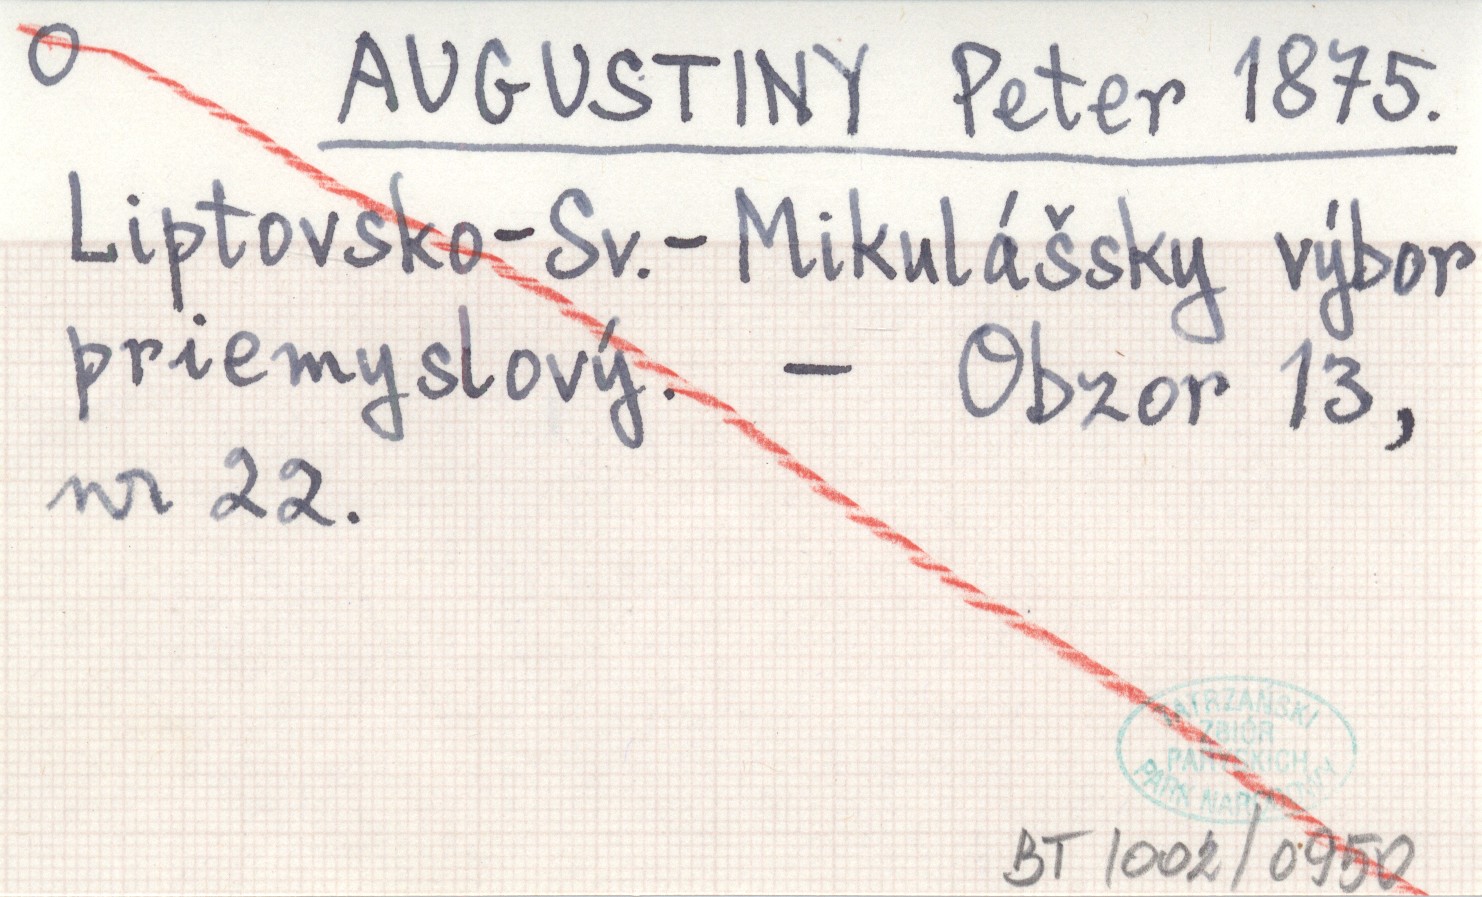 O AUGUSTINY Peter 1875.
Liptovsko-Sv.-Mikulášsky výbor
priemyslový. - Obzor 13,
nr 22.
TATRZAŃSKI
ZBIÓR
PARYSKICH
PARK NARODOWY
BT 1002/0950